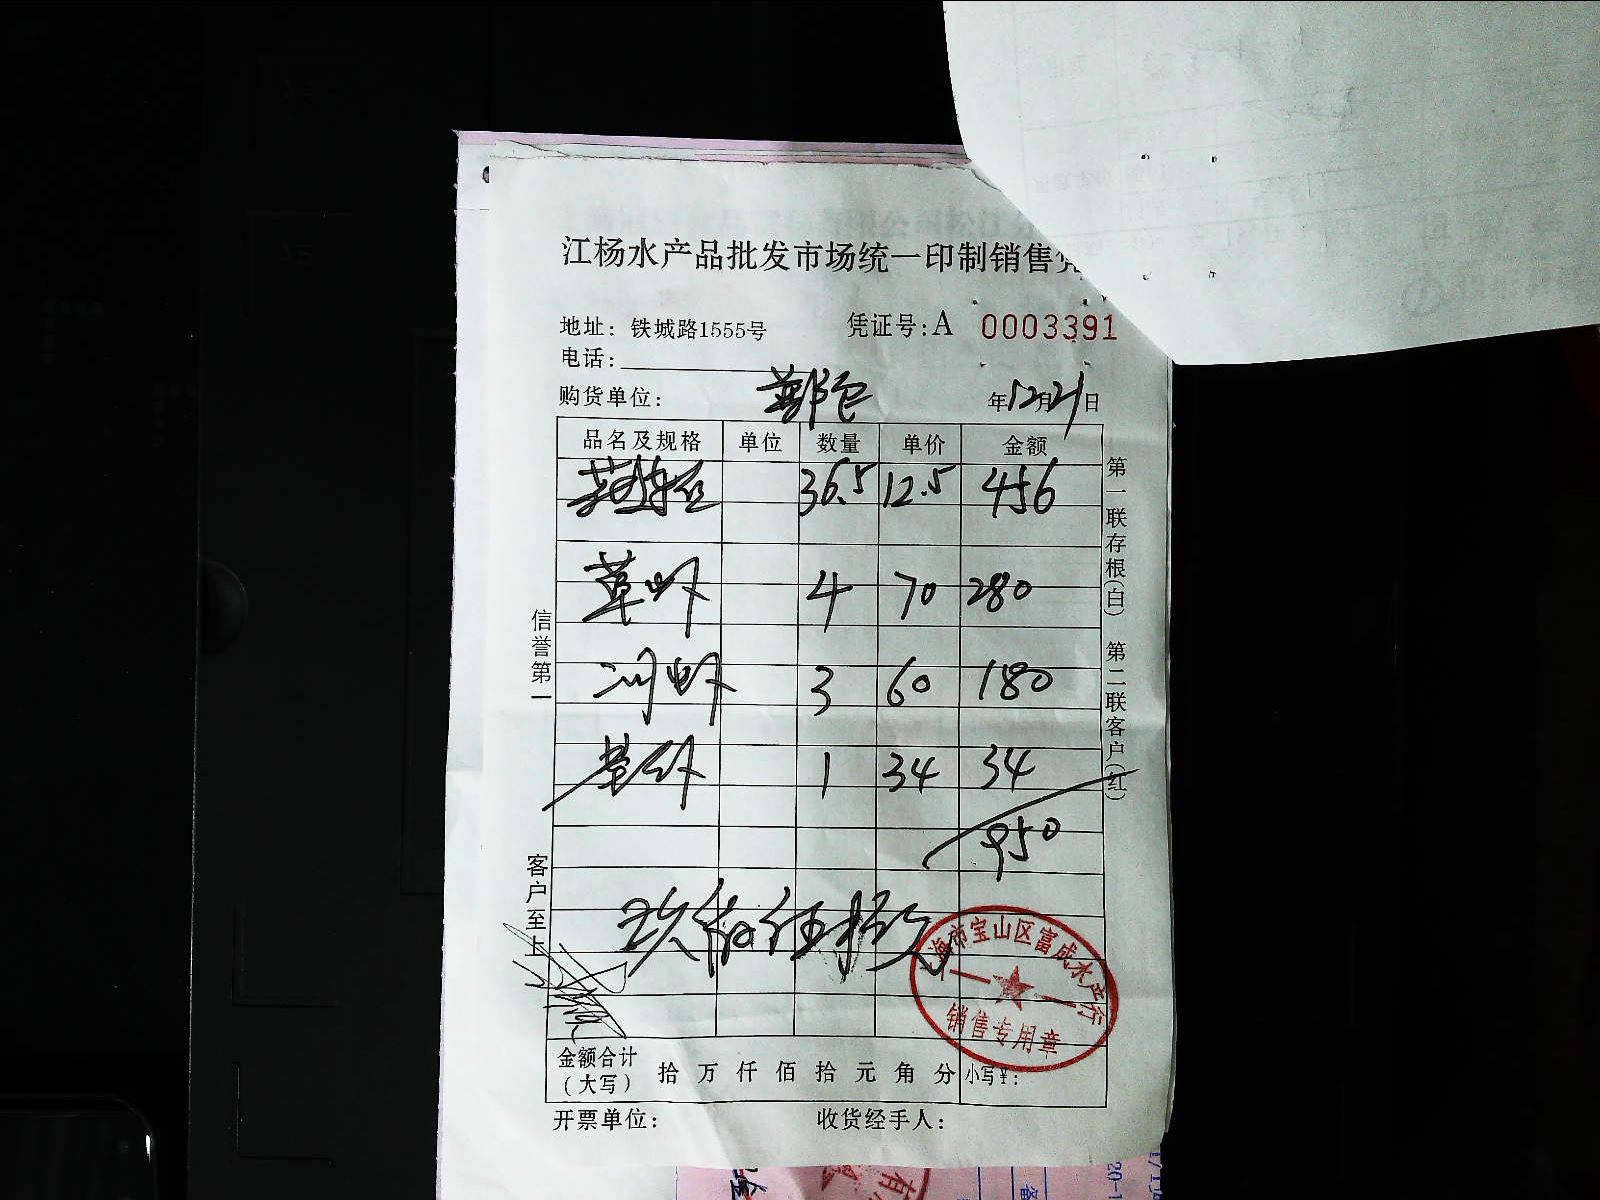 江杨水产品批发市场统一印制销售凭
地址：铁城路1555号 凭证号：A 0003391
电话：
购货单位： 年12月21日
品名及规格 单位 数量 单价 金额
36.5 12.5 456
草虾 4 70 280
河虾 3 60 180
基尾虾 1 34 34
950
玖佰伍拾元
金额合计（大写） 拾 万 仟 佰 拾 元 角 分 小写￥：
开票单位： 收货经手人：
信誉第一
客户至上
第一联存根（白） 第二联客户（红）
上海市宝山区富成水产行
销售专用章